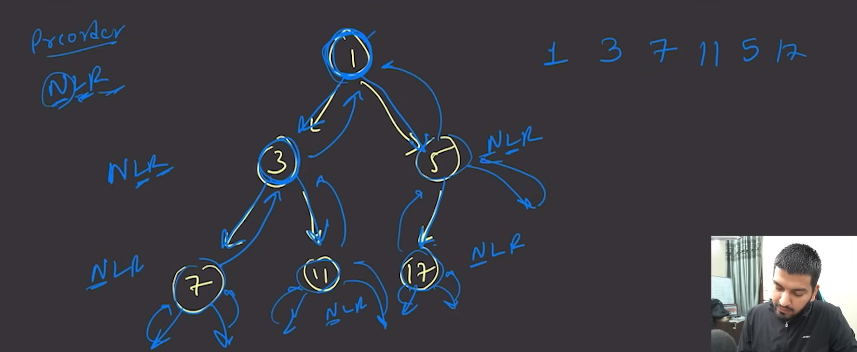 Preorder
NLR
1 3 7 11 5 17
1
3
5
NLR
NLR
7
11
17
NLR
NLR
NLR